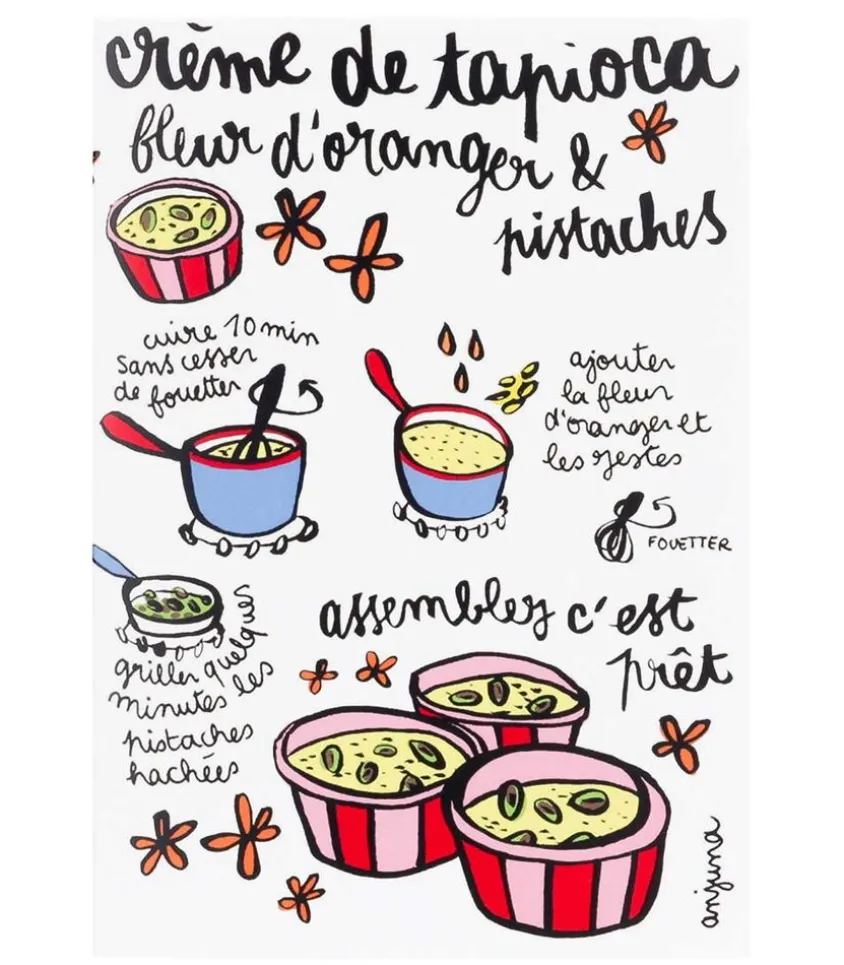 crème de tapioca
fleur d'oranger &
pistaches
cuire 10 min
sans cesser
de fouetter
ajouter
la fleur
d'oranger et
les zestes
FOUETTER
griller quelques
minutes les
pistaches
hachées
assemblez c'est
prêt
anjuna